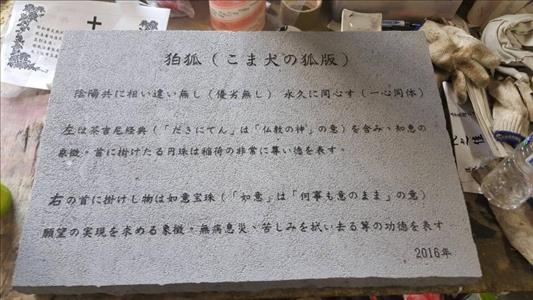 狛狐（こま犬の狐版）
陰陽共に相い違い無し（優劣無し） 永久に同心す（一心同体）
左は荼吉尼経典（「だきにてん」は「仏教の神」の意）を含み、知恵の
象徴。首に掛けたる円珠は稲荷の非常に尊い徳を表す。
右の首に掛けし物は如意宝珠（「如意」は「何事も意のまま」の意）
願望の実現を求める象徴。無病息災、苦しみを拭い去る等の功徳を表す
2016年